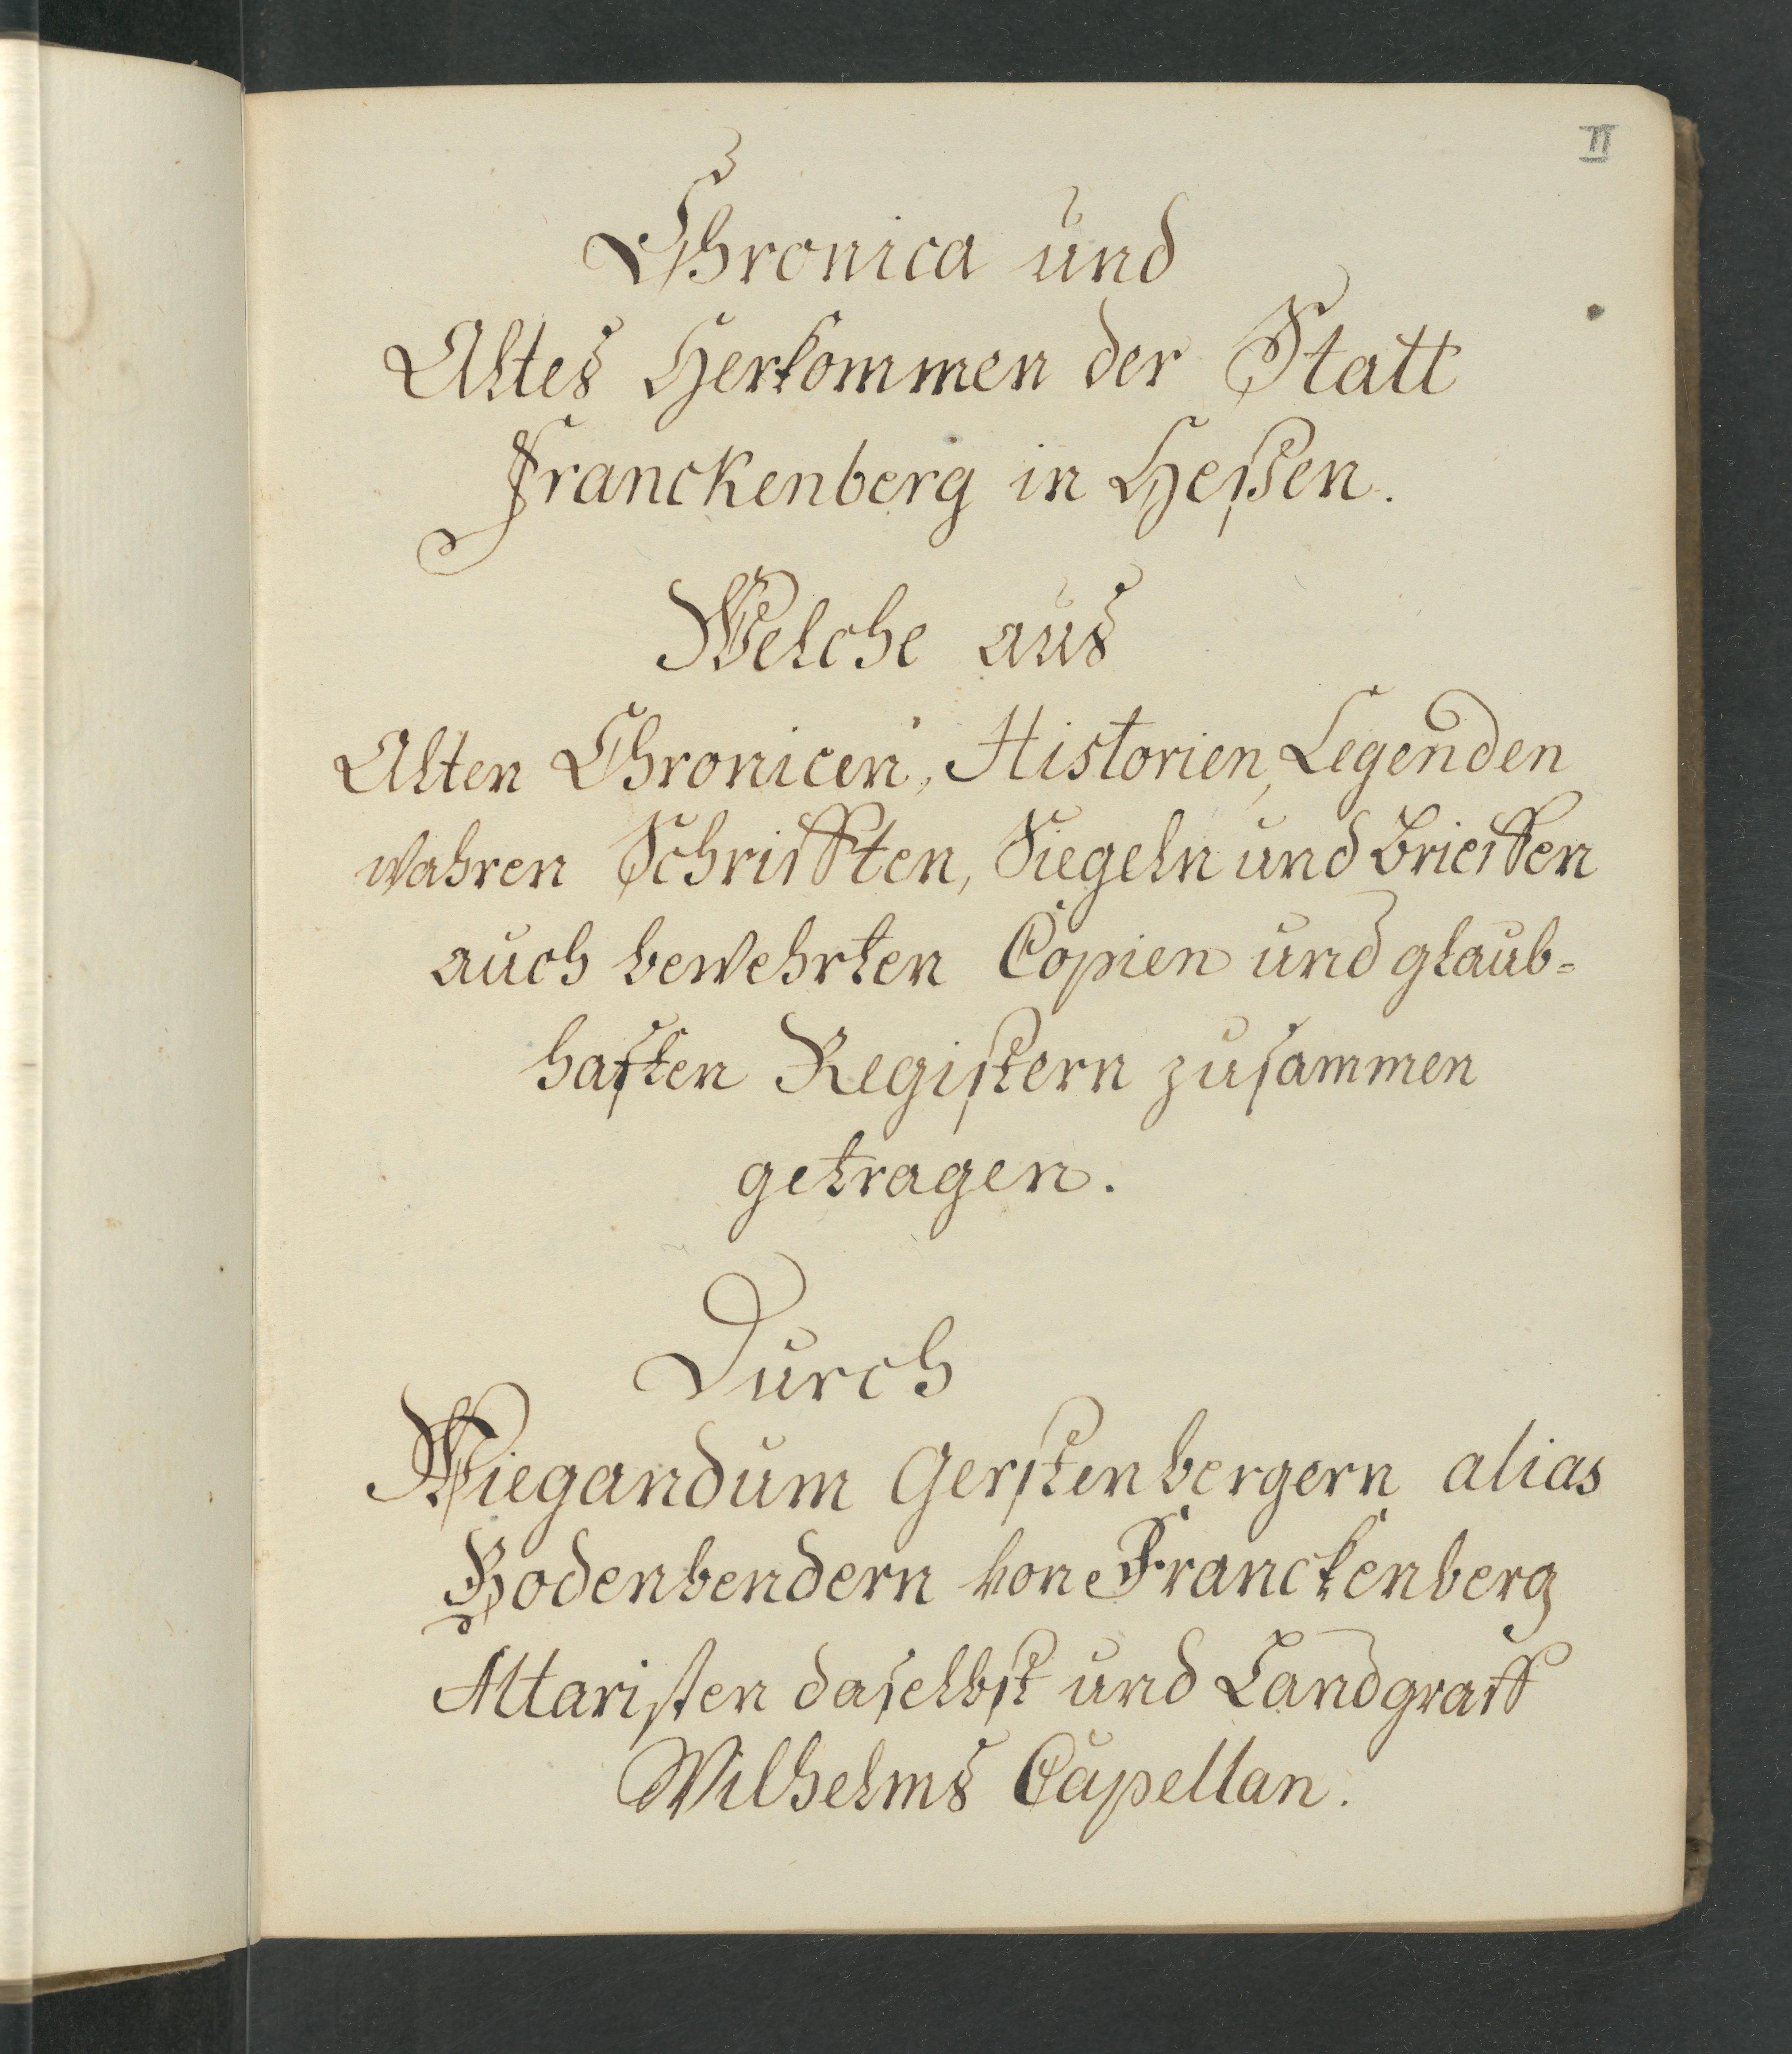 II
Chronica und
Altes Herkommen der Statt
Franckenberg in Heßen.
Welche aus
Alten Chronicen, Historien, Legenden
wahren Schrifften, Siegeln und Brieffen
auch bewehrten Copien und glaub-
haften Registern zusammen
getragen.
Durch
Wiegandum Gerstenbergern alias
Bodenbendern von Franckenberg
Altaristen daselbst und Landgraff
Wilhelms Capellan.